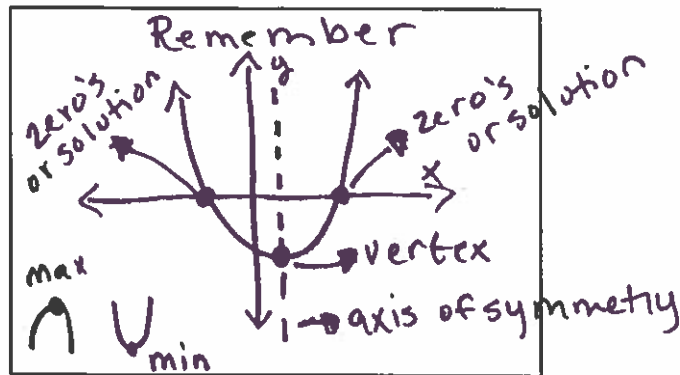 Remember
y
zero's
or solution
zero's
or solution
x
vertex
max
axis of symmetry
min